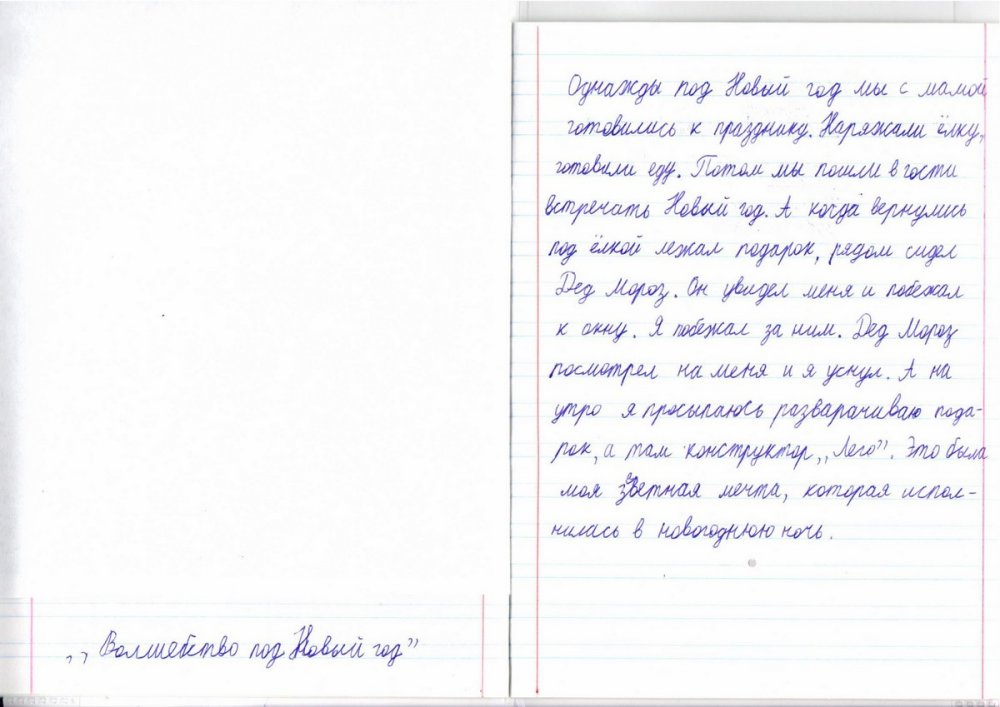 „Волшебство под Новый год"
Однажды под Новый год мы с мамой
готовились к празднику. Наряжали ёлку,
готовили еду. Потом мы пошли в гости
встречать Новый год. А когда вернулись
под ёлкой лежал подарок, рядом сидел
Дед Мороз. Он увидел меня и побежал
к окну. Я побежал за ним. Дед Мороз
посмотрел на меня и я уснул. А на
утро я просыпаюсь разварачиваю пода-
рок, а там конструктор „Лего". Это была
моя заветная мечта, которая испол-
нилась в новогоднюю ночь.